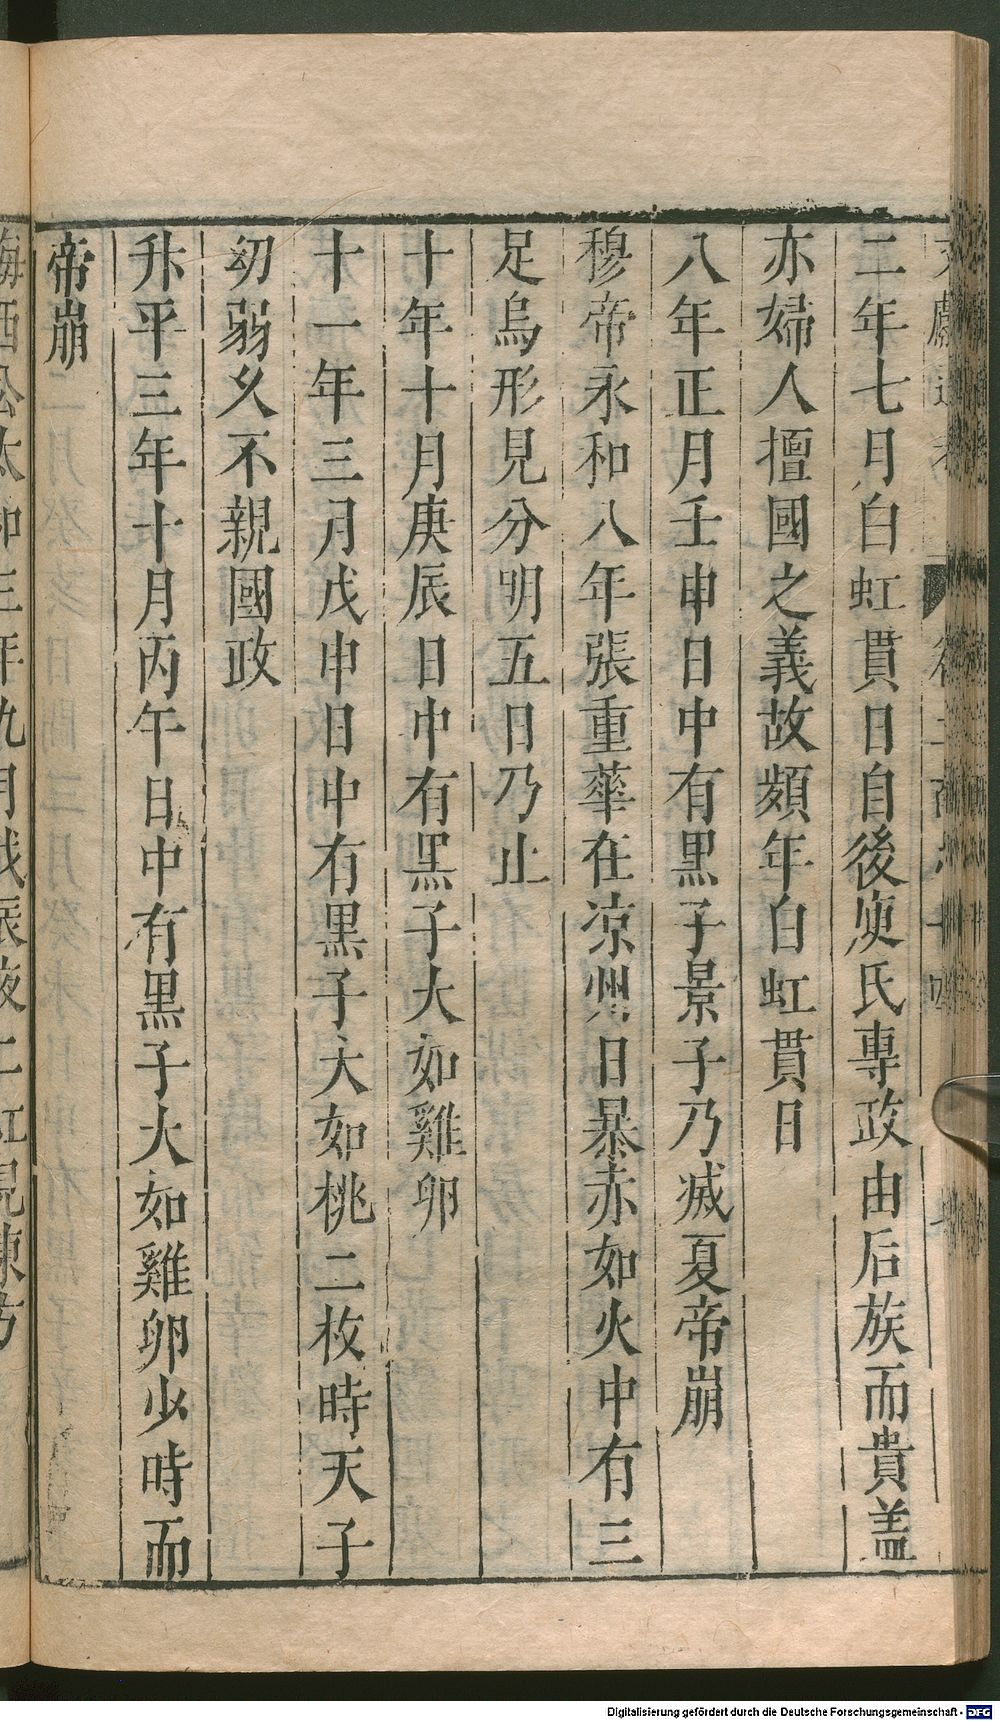 二年七月白虹貫日自後庾氏專政由后族而貴盖
亦婦人擅國之義故頻年白虹貫日
八年正月壬申日中有黒子景子乃滅夏帝崩
穆帝永和八年張重華在涼州日暴赤如火中有三
足烏形見分明五日乃止
十年十月庚辰日中有黒子大如雞卵
十一年三月戊申日中有黒子大如桃二枚時天子
幼弱乆不親國政
升平三年十月丙午日中有黒子大如雞卵少時而
帝崩
海西公太和三年九月戊辰夜二虹見東方
Digitalisierung gefördert durch die Deutsche Forschungsgemeinschaft - DFG